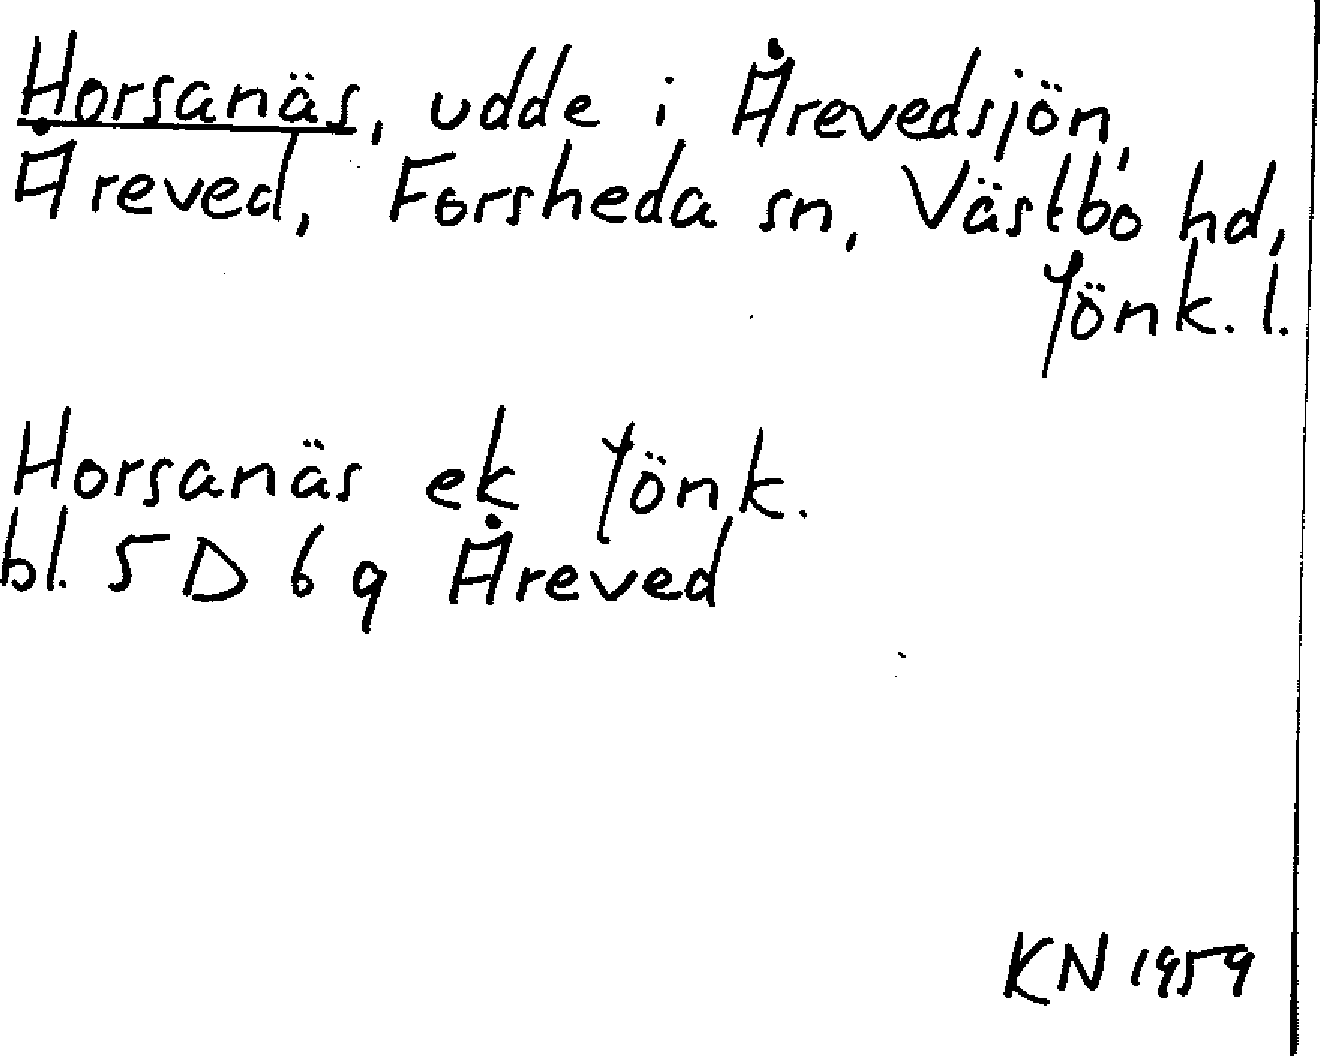 Horsanäs, udde i Årevedsjön,
Åreved, Forsheda sn, Västbo hd,
Jönk. l.
Horsanäs ek Jönk.
bl. 5 D 6 q Åreved
KN 1959